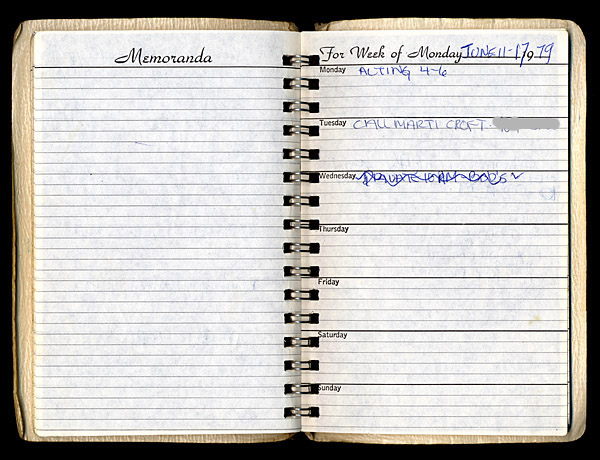 Memoranda
For Week of Monday JUNE 11-17 1979
Monday ACTING 4-6
Tuesday CALL MARTI CROFT
Wednesday
Thursday
Friday
Saturday
Sunday